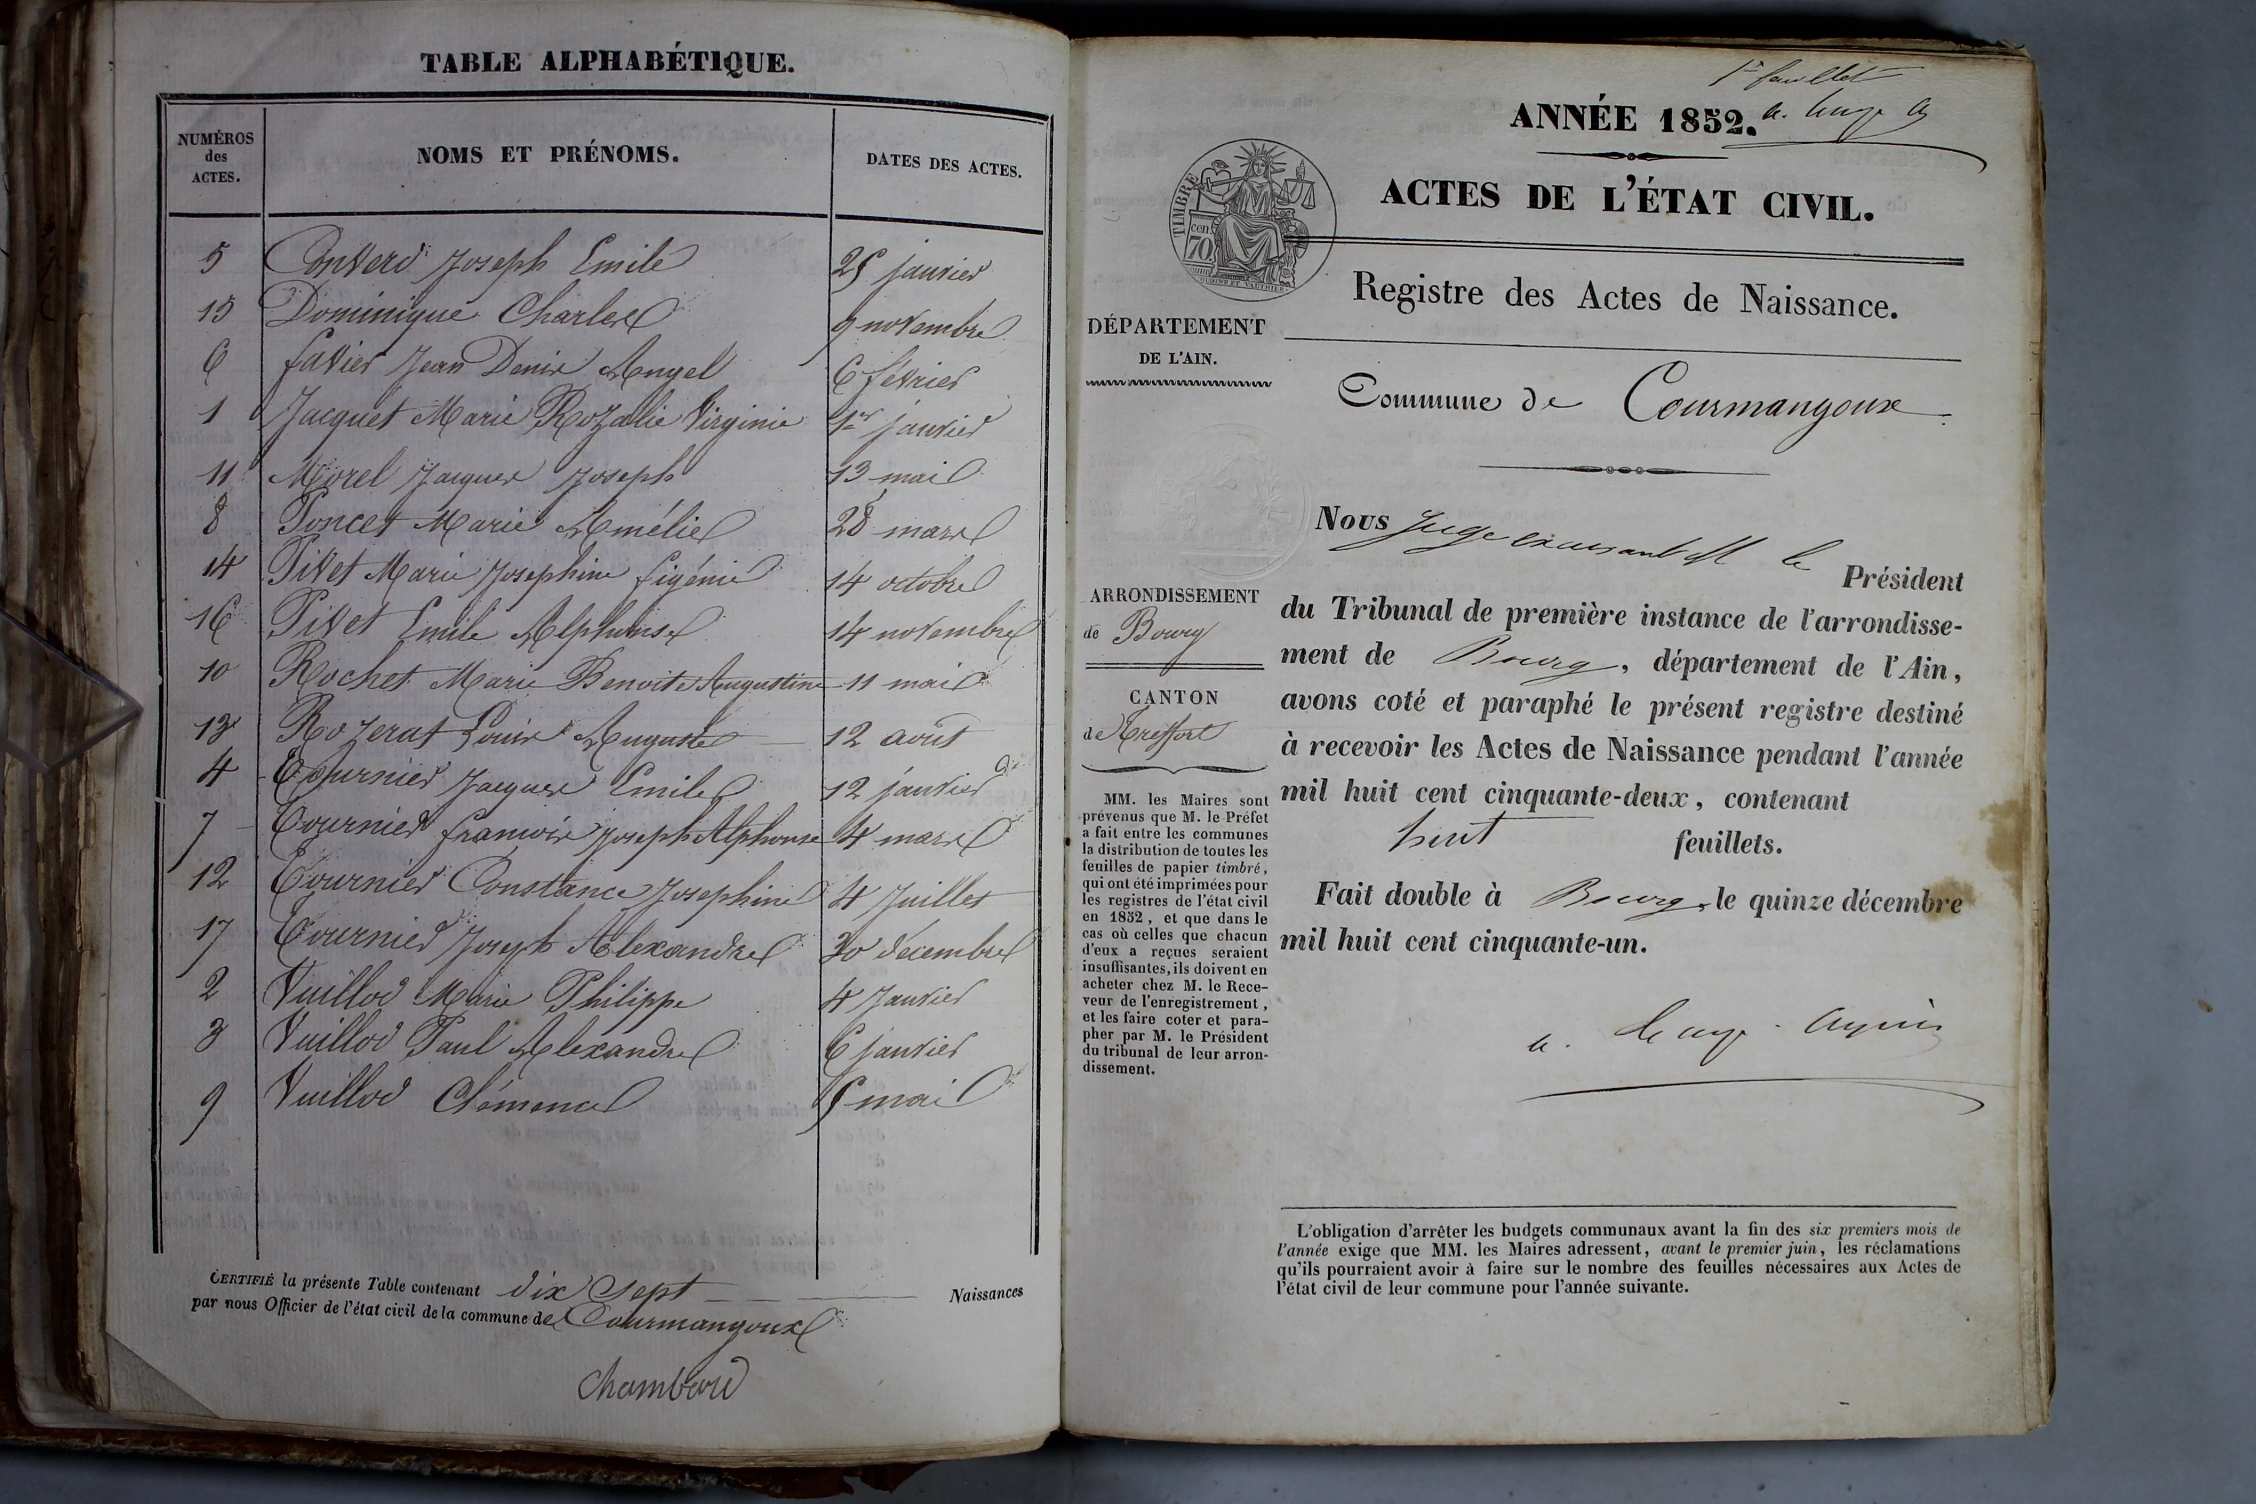 TABLE ALPHABÉTIQUE.
NUMÉROS des ACTES. NOMS ET PRÉNOMS. DATES DES ACTES.
5 Convert Joseph Emile 25 janvier
15 Dominique Charles 9 novembre
6 favier Jean Denis Angel 6 février
1 Jacquet Marie Rozalie Virginie 1er janvier
11 Morel Jacques Joseph 13 mai
8 Poncet Marie Amélie 28 mars
14 Pivet Marie Josephine figénie 14 octobre
16 Pivet Emile Alphonse 14 novembre
10 Rochet Marie Benoite Augustine 11 mai
13 Rozerat Louis Auguste 12 août
4 Tournier Jacques Emile 12 janvier
7 Tournier françois Joseph Alphonse 4 mars
12 Tournier Constance Josephine 4 Juillet
17 Tournier Joseph Alexandre 30 décembre
2 Vuillod Marie Philippe 4 Janvier
3 Vuillod Paul Alexandre 6 janvier
9 Vuillod Clémence 5 mai
CERTIFIÉ la présente Table contenant dix sept Naissances
par nous Officier de l'état civil de la commune de Courmangoux
Chambard
1er feuillet
ANNÉE 1852.
TIMBRE
70 cen.
ACTES DE L'ÉTAT CIVIL.
Registre des Actes de Naissance.
DÉPARTEMENT
DE L'AIN.
Commune de Courmangoux
ARRONDISSEMENT
de Bourg
CANTON
de Treffort
MM. les Maires sont
prévenus que M. le Préfet
a fait entre les communes
la distribution de toutes les
feuilles de papier timbré,
qui ont été imprimées pour
les registres de l'état civil
en 1852, et que dans le
cas où celles que chacun
d'eux a reçues seraient
insuffisantes, ils doivent en
acheter chez M. le Rece-
veur de l'enregistrement,
et les faire coter et para-
pher par M. le Président
du tribunal de leur arron-
dissement.
Nous Juge M le Président
du Tribunal de première instance de l'arrondisse-
ment de Bourg, département de l'Ain,
avons coté et paraphé le présent registre destiné
à recevoir les Actes de Naissance pendant l'année
mil huit cent cinquante-deux, contenant
huit feuillets.
Fait double à Bourg, le quinze décembre
mil huit cent cinquante-un.
L'obligation d'arrêter les budgets communaux avant la fin des six premiers mois de
l'année exige que MM. les Maires adressent, avant le premier juin, les réclamations
qu'ils pourraient avoir à faire sur le nombre des feuilles nécessaires aux Actes de
l'état civil de leur commune pour l'année suivante.